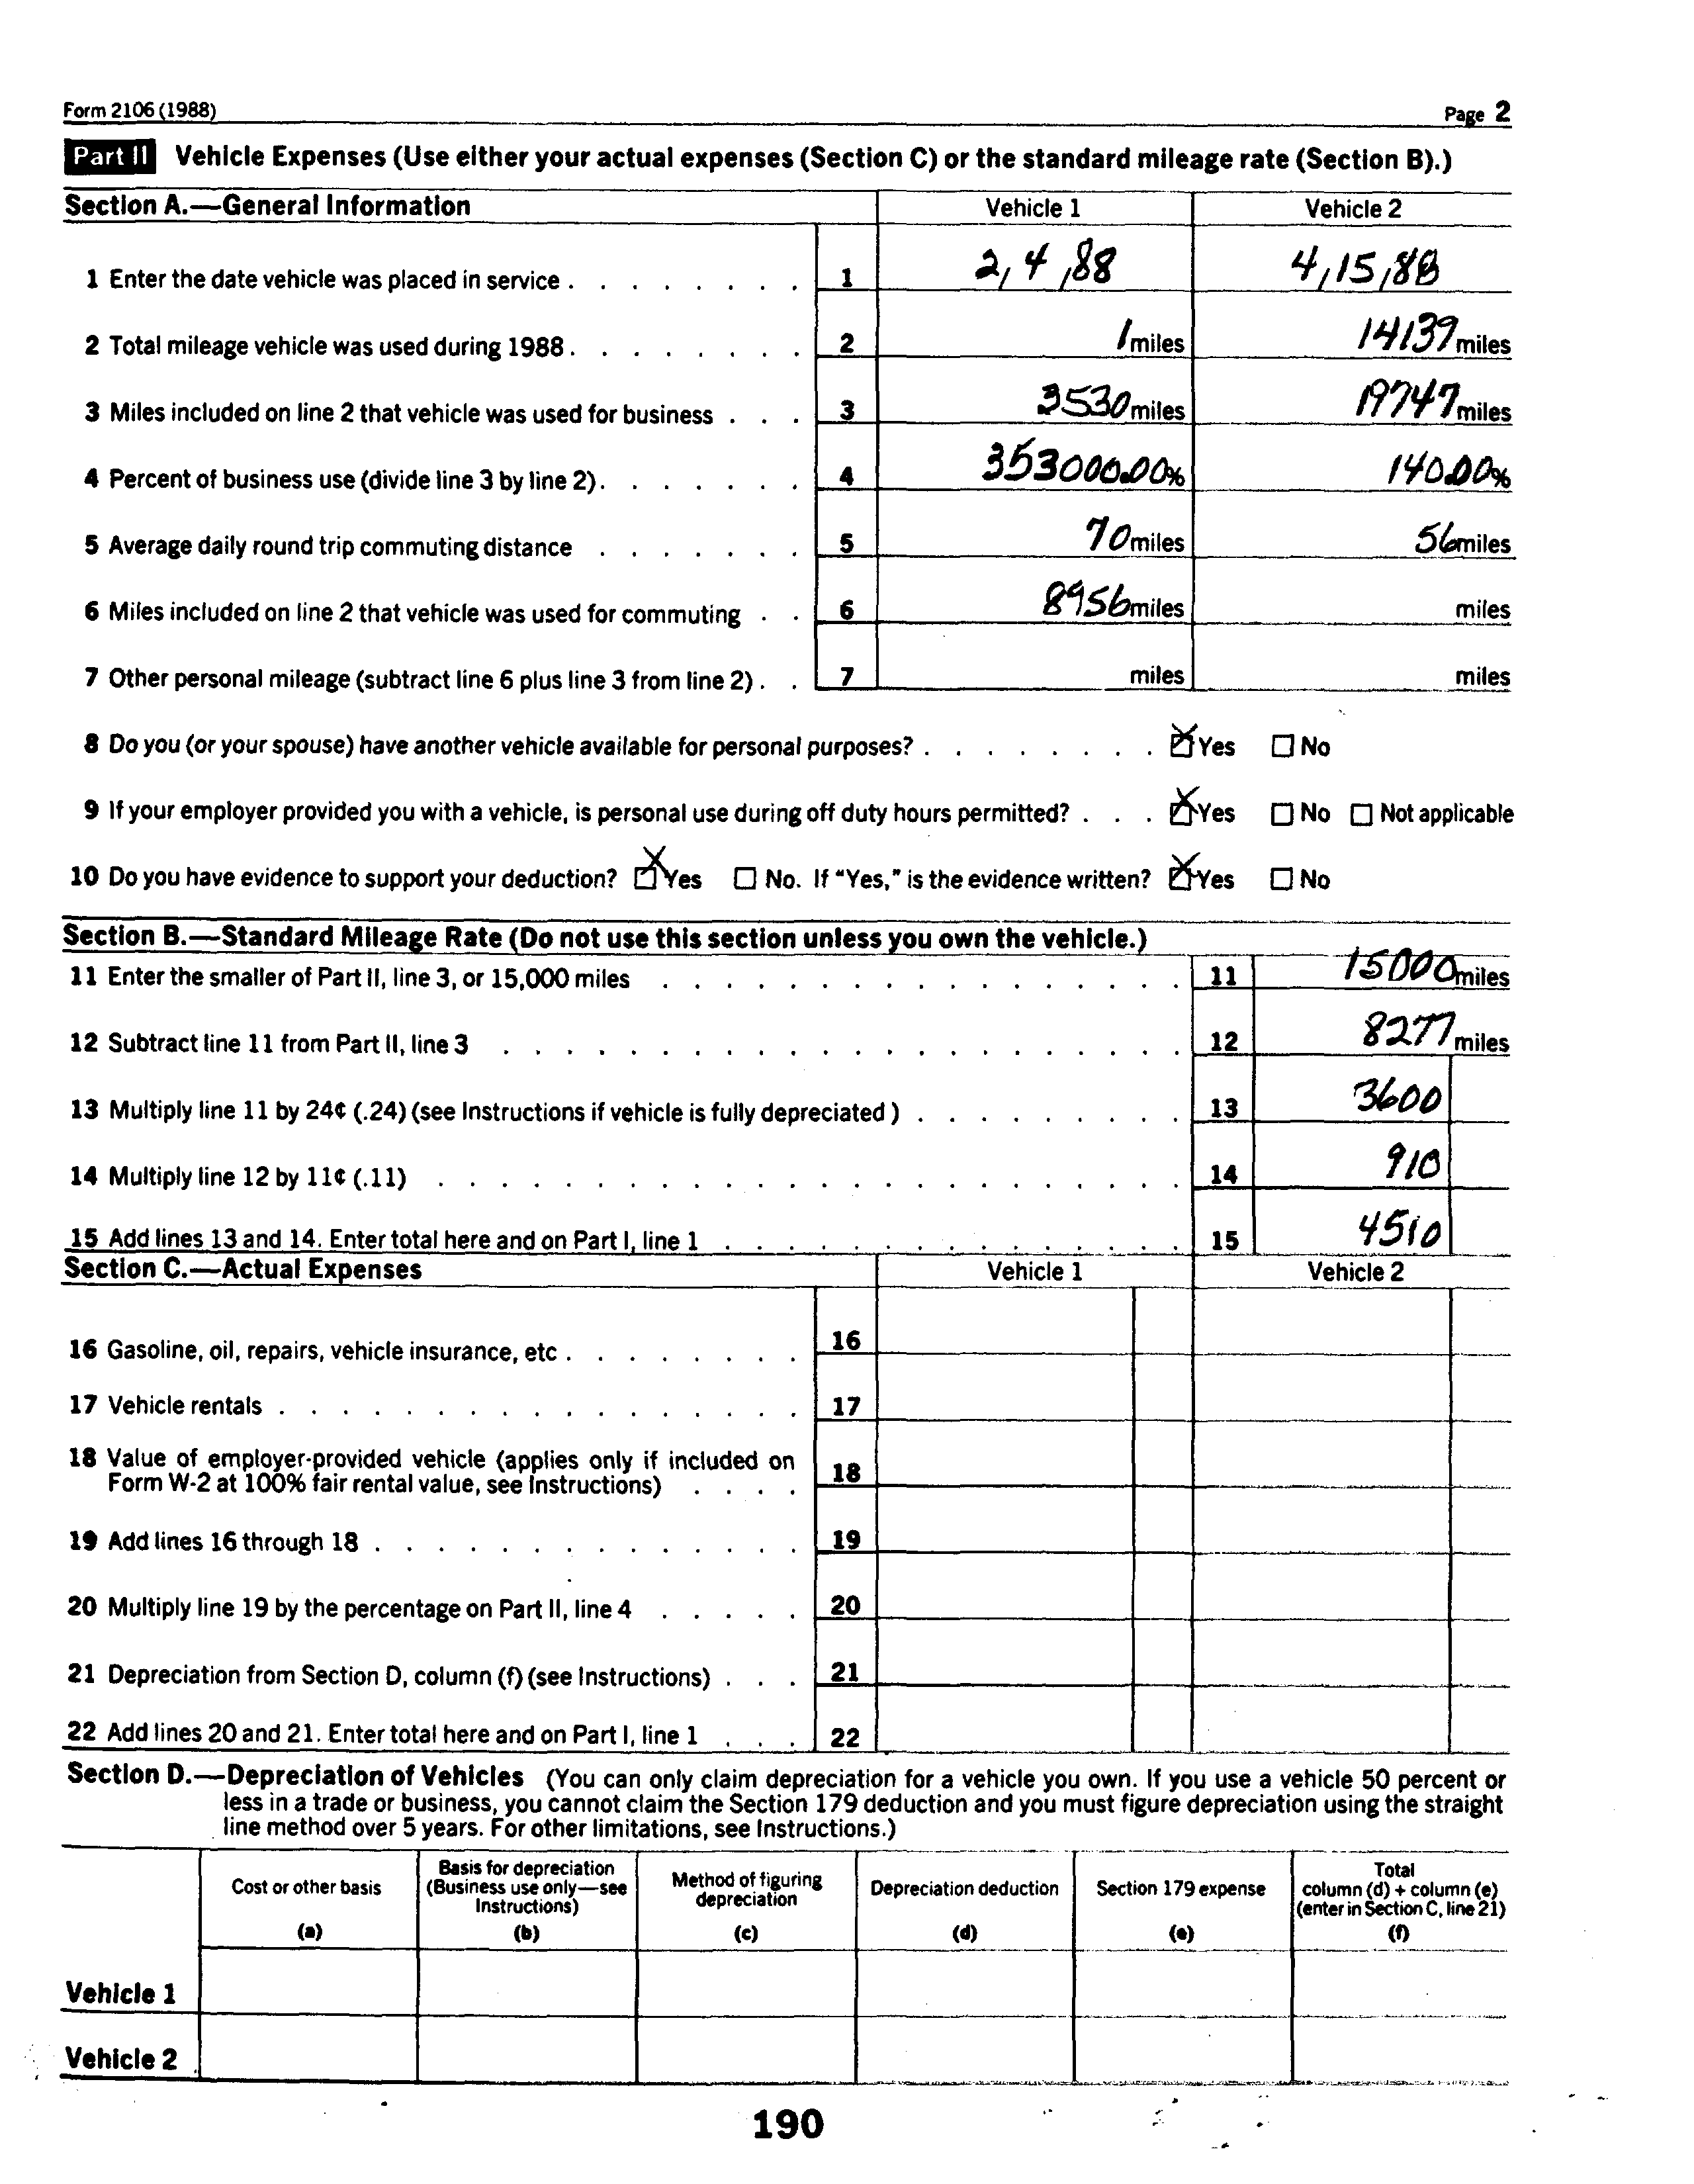 Form 2106 (1988) Page 2
Part II Vehicle Expenses (Use either your actual expenses (Section C) or the standard mileage rate (Section B).)
Section A.—General Information Vehicle 1 Vehicle 2
1 Enter the date vehicle was placed in service . . . . . . . . 1 2, 4 ,88 4,15,88
2 Total mileage vehicle was used during 1988 . . . . . . . . 2 1 miles 14139 miles
3 Miles included on line 2 that vehicle was used for business . . . 3 3530 miles 19747 miles
4 Percent of business use (divide line 3 by line 2) . . . . . . . 4 353000.00% 140.00%
5 Average daily round trip commuting distance . . . . . . . 5 70 miles 56 miles
6 Miles included on line 2 that vehicle was used for commuting . . 6 8956 miles miles
7 Other personal mileage (subtract line 6 plus line 3 from line 2) . . 7 miles miles
8 Do you (or your spouse) have another vehicle available for personal purposes? . . . . . . . . ☒ Yes ☐ No
9 If your employer provided you with a vehicle, is personal use during off duty hours permitted? . . . ☒ Yes ☐ No ☐ Not applicable
10 Do you have evidence to support your deduction? ☒ Yes ☐ No. If “Yes,” is the evidence written? ☒ Yes ☐ No
Section B.—Standard Mileage Rate (Do not use this section unless you own the vehicle.)
11 Enter the smaller of Part II, line 3, or 15,000 miles . . . . . . . . . . . . . . . . . 11 15000 miles
12 Subtract line 11 from Part II, line 3 . . . . . . . . . . . . . . . . . . . . . . 12 8277 miles
13 Multiply line 11 by 24¢ (.24) (see Instructions if vehicle is fully depreciated ) . . . . . . . . . 13 3600
14 Multiply line 12 by 11¢ (.11) . . . . . . . . . . . . . . . . . . . . . . . . 14 910
15 Add lines 13 and 14. Enter total here and on Part I, line 1 . . . . . . . . . . . . . . . 15 4510
Section C.—Actual Expenses Vehicle 1 Vehicle 2
16 Gasoline, oil, repairs, vehicle insurance, etc . . . . . . . . 16
17 Vehicle rentals . . . . . . . . . . . . . . . . . 17
18 Value of employer-provided vehicle (applies only if included on
Form W-2 at 100% fair rental value, see Instructions) . . . . 18
19 Add lines 16 through 18 . . . . . . . . . . . . . . 19
20 Multiply line 19 by the percentage on Part II, line 4 . . . . . 20
21 Depreciation from Section D, column (f) (see Instructions) . . . 21
22 Add lines 20 and 21. Enter total here and on Part I, line 1 . . . 22
Section D.—Depreciation of Vehicles (You can only claim depreciation for a vehicle you own. If you use a vehicle 50 percent or
less in a trade or business, you cannot claim the Section 179 deduction and you must figure depreciation using the straight
line method over 5 years. For other limitations, see Instructions.)
Cost or other basis
(a)
Basis for depreciation
(Business use only—see
Instructions)
(b)
Method of figuring
depreciation
(c)
Depreciation deduction
(d)
Section 179 expense
(e)
Total
column (d) + column (e)
(enter in Section C, line 21)
(f)
Vehicle 1
Vehicle 2
190